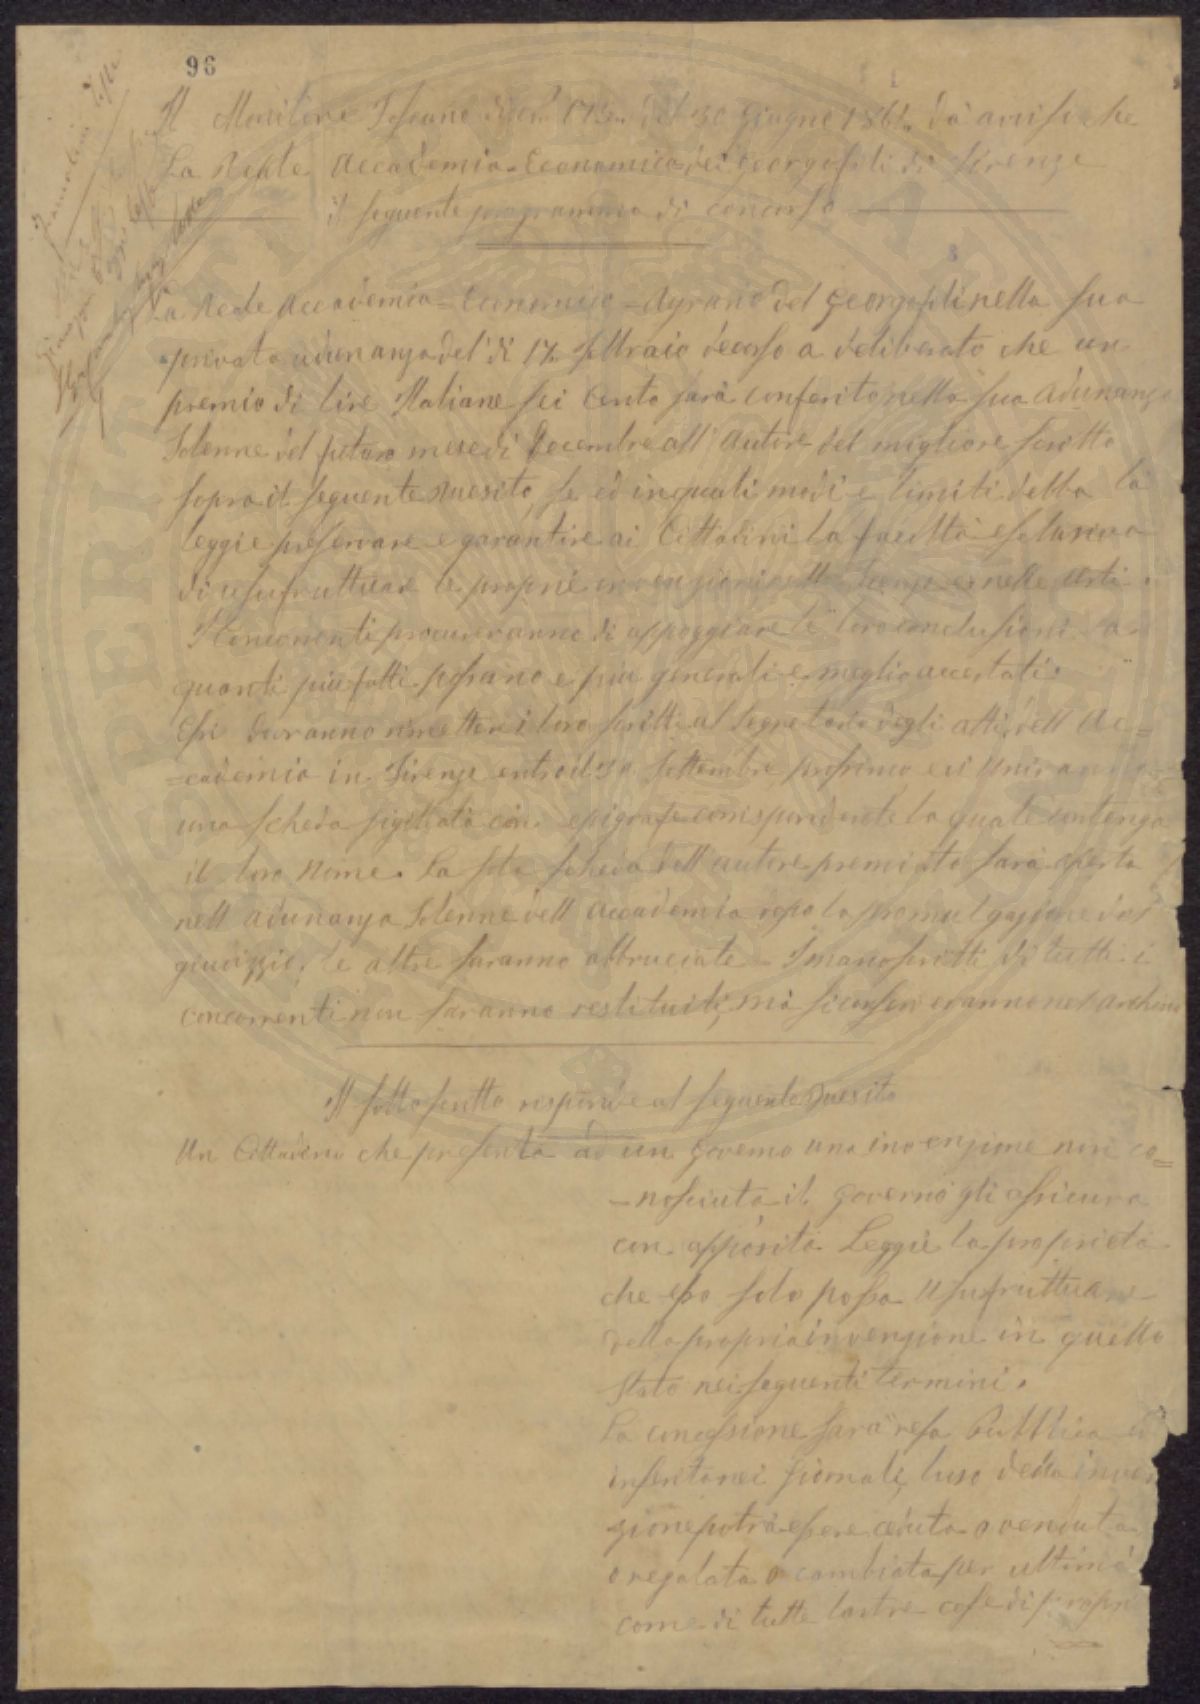 96
Il Monitore Toscano di No. 173 del 30 Giugno 1861 da avviso che
La Reale Accademia Economica dei Georgofili di Firenze
il seguente programma di concorso
La Reale Accademia Economico Agraria del Georgofili nella sua
privata adunanza del di 17 febbraio decorso a deliberato che un
premio di lire Italiane sei Cento sarà conferito nella sua Adunanza
Solenne del futuro mese di Decembre all' Autore del migliore scritto
sopra il seguente Quesito, se ed in quali modi e limiti debba la
leggie preservare e garantire ai Cittadini la facoltà esclusiva
di usufruttuare le proprie invenzioni nelle Arti.
I Concorrenti procureranno di appoggiare le loro conclusioni a
quanti più fatti possano e più generali e meglio accertati.
Essi dovranno rimettere i loro scritti al Segretario degli atti dell' Ac=
=cademia in Firenze entro il 30 Settembre prossimo e vi
una scheda sigillata con epigrafe corrispondente la quale contenga
il loro Nome. La sola scheda dell' autore premiato sarà aperta
nell' adunanza Solenne dell' Accademia dopo la promulgazione del
giudizzio, le altre saranno abbruciate - I manoscritti di tutti i
concorrenti non saranno restituiti, ma si conserveranno nel Archivio
Il sotto scritto risponde al seguente Quesito
Un Cittadino che presenta ad un governo una invenzione non co=
-nosciuta il governo gli assicura
con apposita Leggie la proprietà
che esso solo possa usufruttuare
della propria invenzione in quello
stato nei seguenti termini.
La concessione sarà resa Pubblica ed
inserita nei giornali, luso della inven
zione potrà essere ceduta o venduta
o regalata o cambiata per ultimo
come di tutte laltre cose di propri